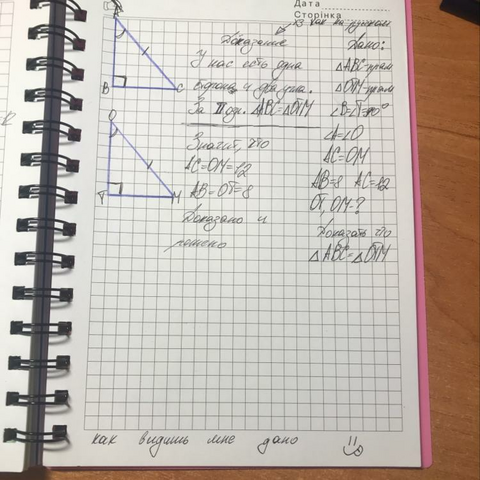 Дата
Сторінка
хз как на русском
Доказание
У нас есть одна
сторона и два угла.
За II озн. △ABC=△OTM
Значит, что
AC=OM=12
AB=OT=8
Доказано и
решено
Дано:
△ABC-прям
△OTM-прям
∠B=∠T=90°
∠A=∠O
AC=OM
AB=8 AC=12
OT, OM-?
Доказать что
△ABC=△OTM
A
B
C
O
T
M
как видишь мне дано